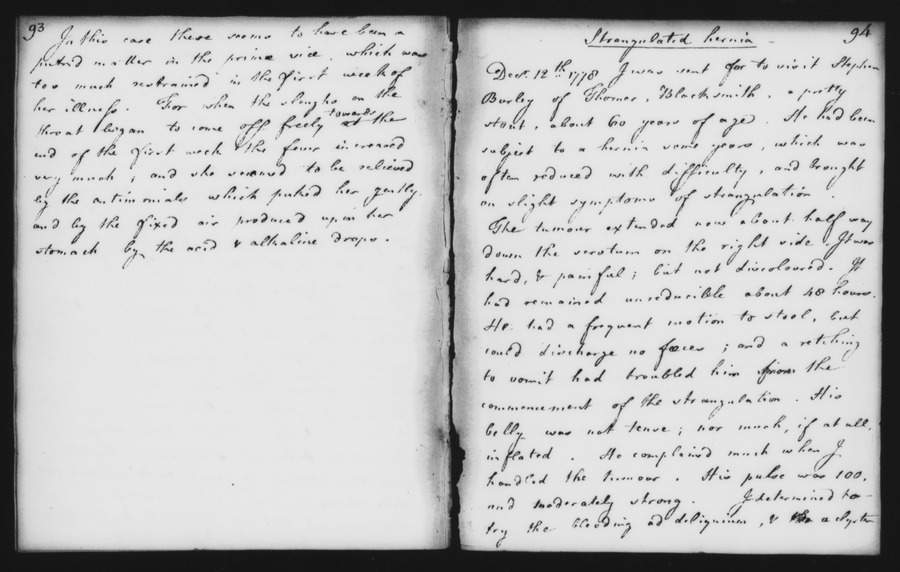 93
In this case there seems to have been a
putrid matter in the primæ viæ, which was
too much restrained in the first week of
her illness. For when the sloughs on the
throat began to come off freely towards the
end of the first week & the fever increased
very much; and she seemed to be relieved
by the antimonials which puked her gently
and by the fixed air produced upin her
stomach by the acid & alkaline drops.
94
Strangulated hernia
Decr. 12th. 1778 I was sent for to visit Stephen
Burley of Thorner, Blacksmith, a pretty
stout, about 60 years of age. He had been
subject to a hernia some years, which was
often reduced with difficulty, and brought
on slight symptoms of strangulation.
The tumour extended now about half way
down the scrotum on the right side. It was
hard, & painful; but not discoloured. It
had remained unreducible about 48 hours.
He had a frequent motion to stool, but
could discharge no fœces; and a retching
to vomit had troubled him from the
commencement of the strangulation. His
belly was not tense; nor much, if at all,
inflated. He complain'd much when I
handled the tumour. His pulse was 100,
and moderately strong. I determined to
try the bleeding ad deliquium, & a clyster